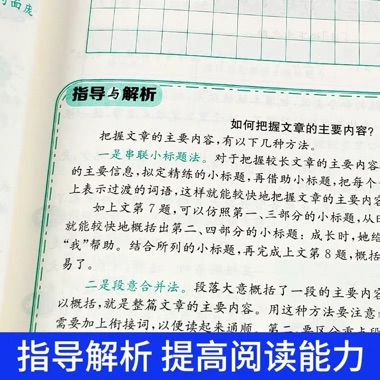 指导与解析
如何把握文章的主要内容?
把握文章的主要内容,有以下几种方法。
一是串联小标题法。对于把握较长文章的主要内容
的主要信息,拟定精练的小标题,再借助小标题,把每个
上表示过渡的词语,这样就能较快地把握文章的主要内容
如上文第7题,可以仿照第一、三部分的小标题,从
就能较快地概括出第二、四部分的小标题:成长时,她给
“我”帮助。结合所列的小标题,再完成上文第8题,概括
易了。
二是段意合并法。段落大意概括了一段的主要内容
以概括,就是整篇文章的主要内容。用这种方法要注意
需要加上衔接词,以便读起来通顺。第二,要区分重点段
指导解析 提高阅读能力